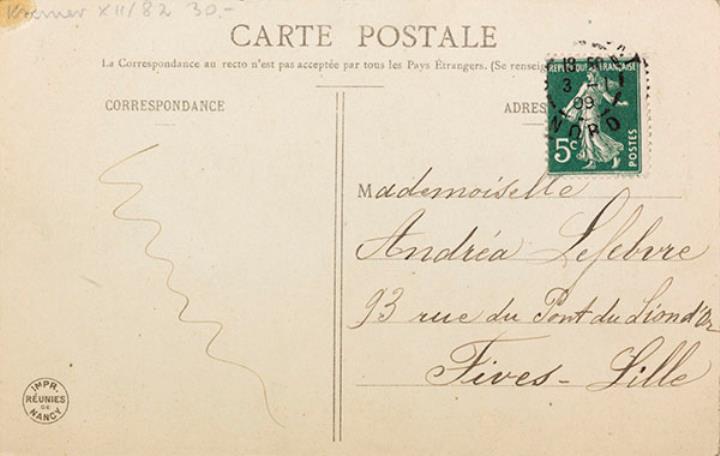 Kremer XII/82 30.-
CARTE POSTALE
La Correspondance au recto n'est pas acceptée par tous les Pays Étrangers. (Se renseig
CORRESPONDANCE
ADRES
REPUBLIQUE FRANÇAISE
POSTES
5c
3 - 1
09
NORD
Mademoiselle
Andréa Lefebvre
93 rue du Pont du Lion d'Or
Fives - Lille
IMPR.
RÉUNIES
DE
NANCY